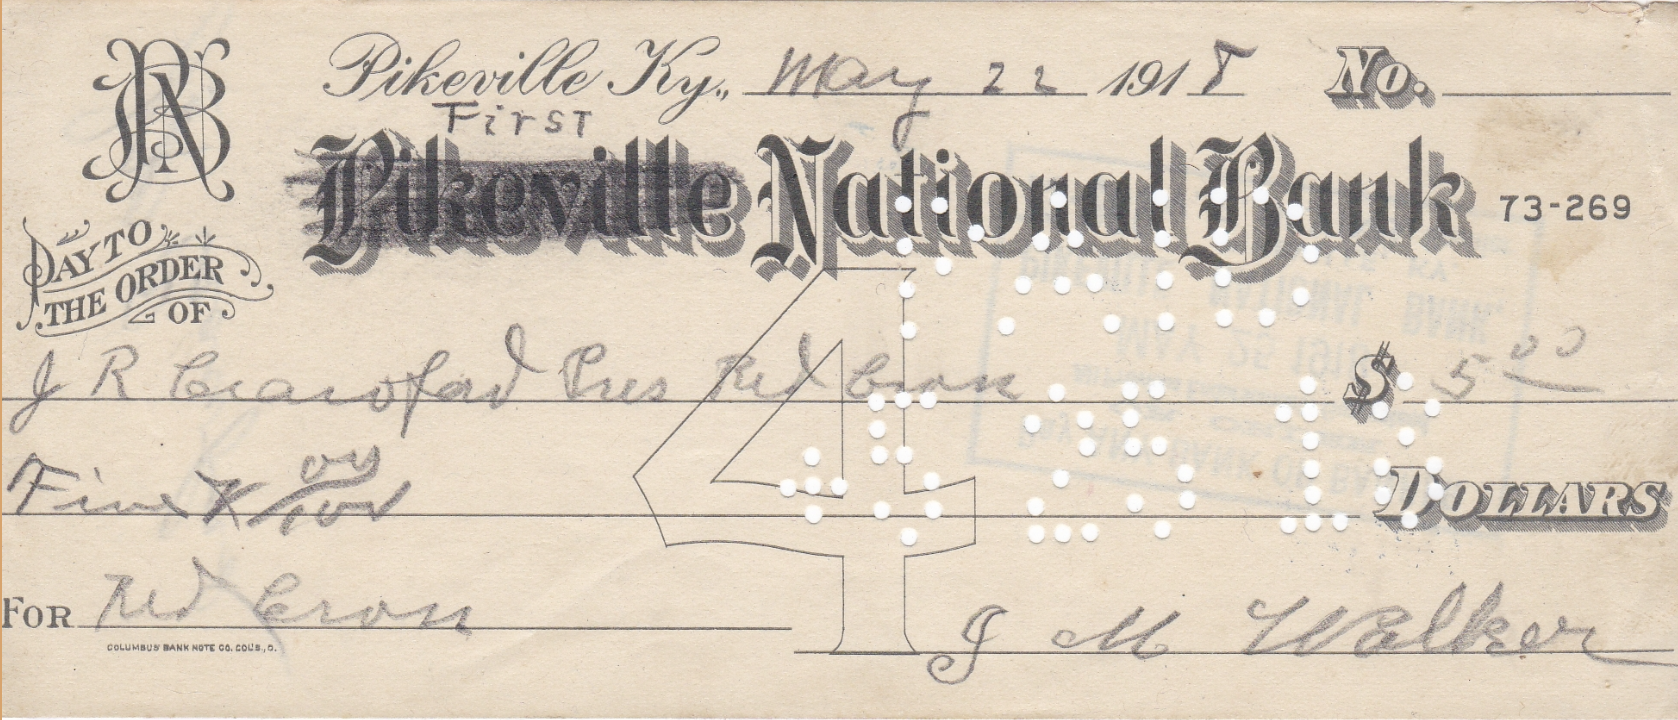 PNB
Pikeville Ky., May 22 1918 No.
First
Pikeville National Bank 73-269
PAY TO
THE ORDER
OF
J R Crawford Pres Red Cross $ 5 00
Five & 00/100 DOLLARS
FOR Red Cross
J M Walker
COLUMBUS BANK NOTE CO. COL'S., O.
PAID
5 25 18